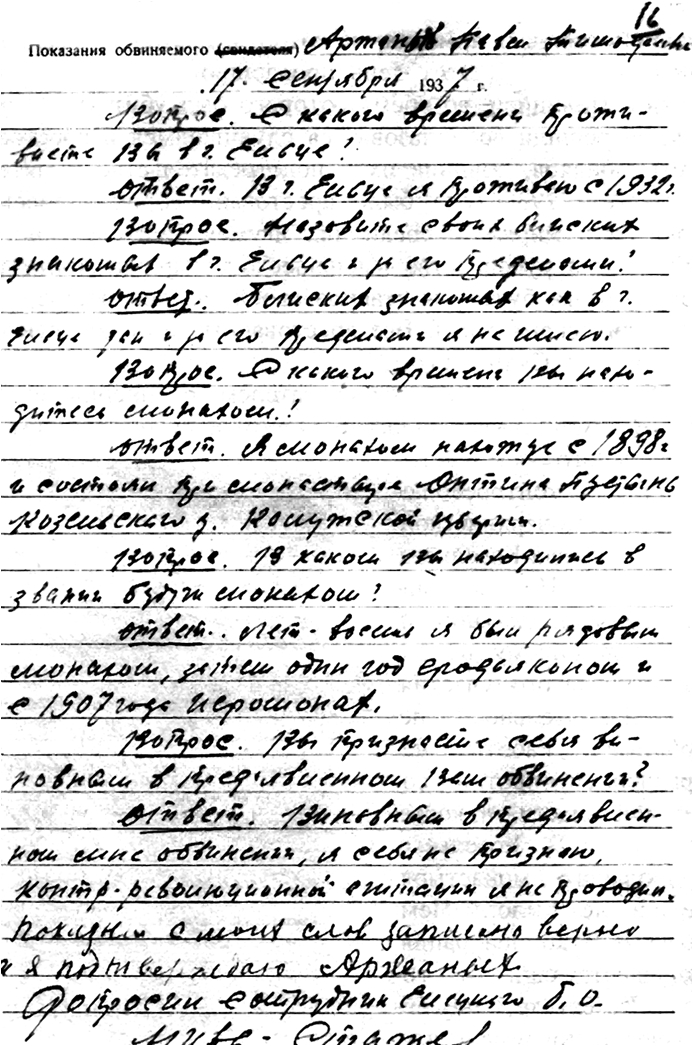 16
Показания обвиняемого (свидетеля) Аржаных Павел Тимофеевич
17 сентября 1937 г.
Вопрос. С какого времени прожи-
ваете Вы в г. Ельце?
Ответ. В г. Ельце я проживаю с 1932 г.
Вопрос. Назовите своих близких
знакомых в г. Ельце и за его пределами?
Ответ. Близких знакомых как в г.
Ельце так и за его пределами я не имею.
Вопрос. С какого времени Вы нахо-
дитесь монахом?
Ответ. Я монахом нахожусь с 1898 г
и состоял при монастыре Оптина Пустынь
Козельского у. Калужской губернии.
Вопрос. В каком Вы находились в
звании будучи монахом?
Ответ. Лет-восемь я был рядовым
монахом, затем один год еродьяконом и
с 1907 года иеромонах.
Вопрос. Вы признаете себя ви-
новным в предъявленном Вам обвинении?
Ответ. Виновным в предъявлен-
ном мне обвинении, я себя не признаю,
контр-революционной агитации я не проводил.
Показания с моих слов записано верно
и я подтверждаю Аржаных
Допросил сотрудник Елецкого б.о.